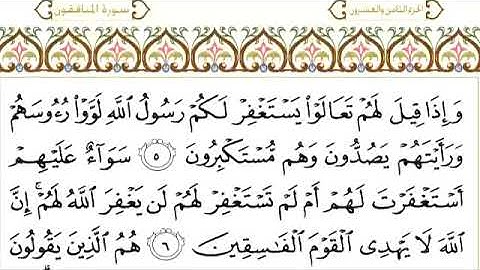 سورة المنافقون الجزء الثامن والعشرون
وَإِذَا قِيلَ لَهُمْ تَعَالَوْا۟ يَسْتَغْفِرْ لَكُمْ رَسُولُ ٱللَّهِ لَوَّوْا۟ رُءُوسَهُمْ
وَرَأَيْتَهُمْ يَصُدُّونَ وَهُم مُّسْتَكْبِرُونَ ٥ سَوَآءٌ عَلَيْهِمْ
أَسْتَغْفَرْتَ لَهُمْ أَمْ لَمْ تَسْتَغْفِرْ لَهُمْ لَن يَغْفِرَ ٱللَّهُ لَهُمْ ۚ إِنَّ
ٱللَّهَ لَا يَهْدِى ٱلْقَوْمَ ٱلْفَٰسِقِينَ ٦ هُمُ ٱلَّذِينَ يَقُولُونَ